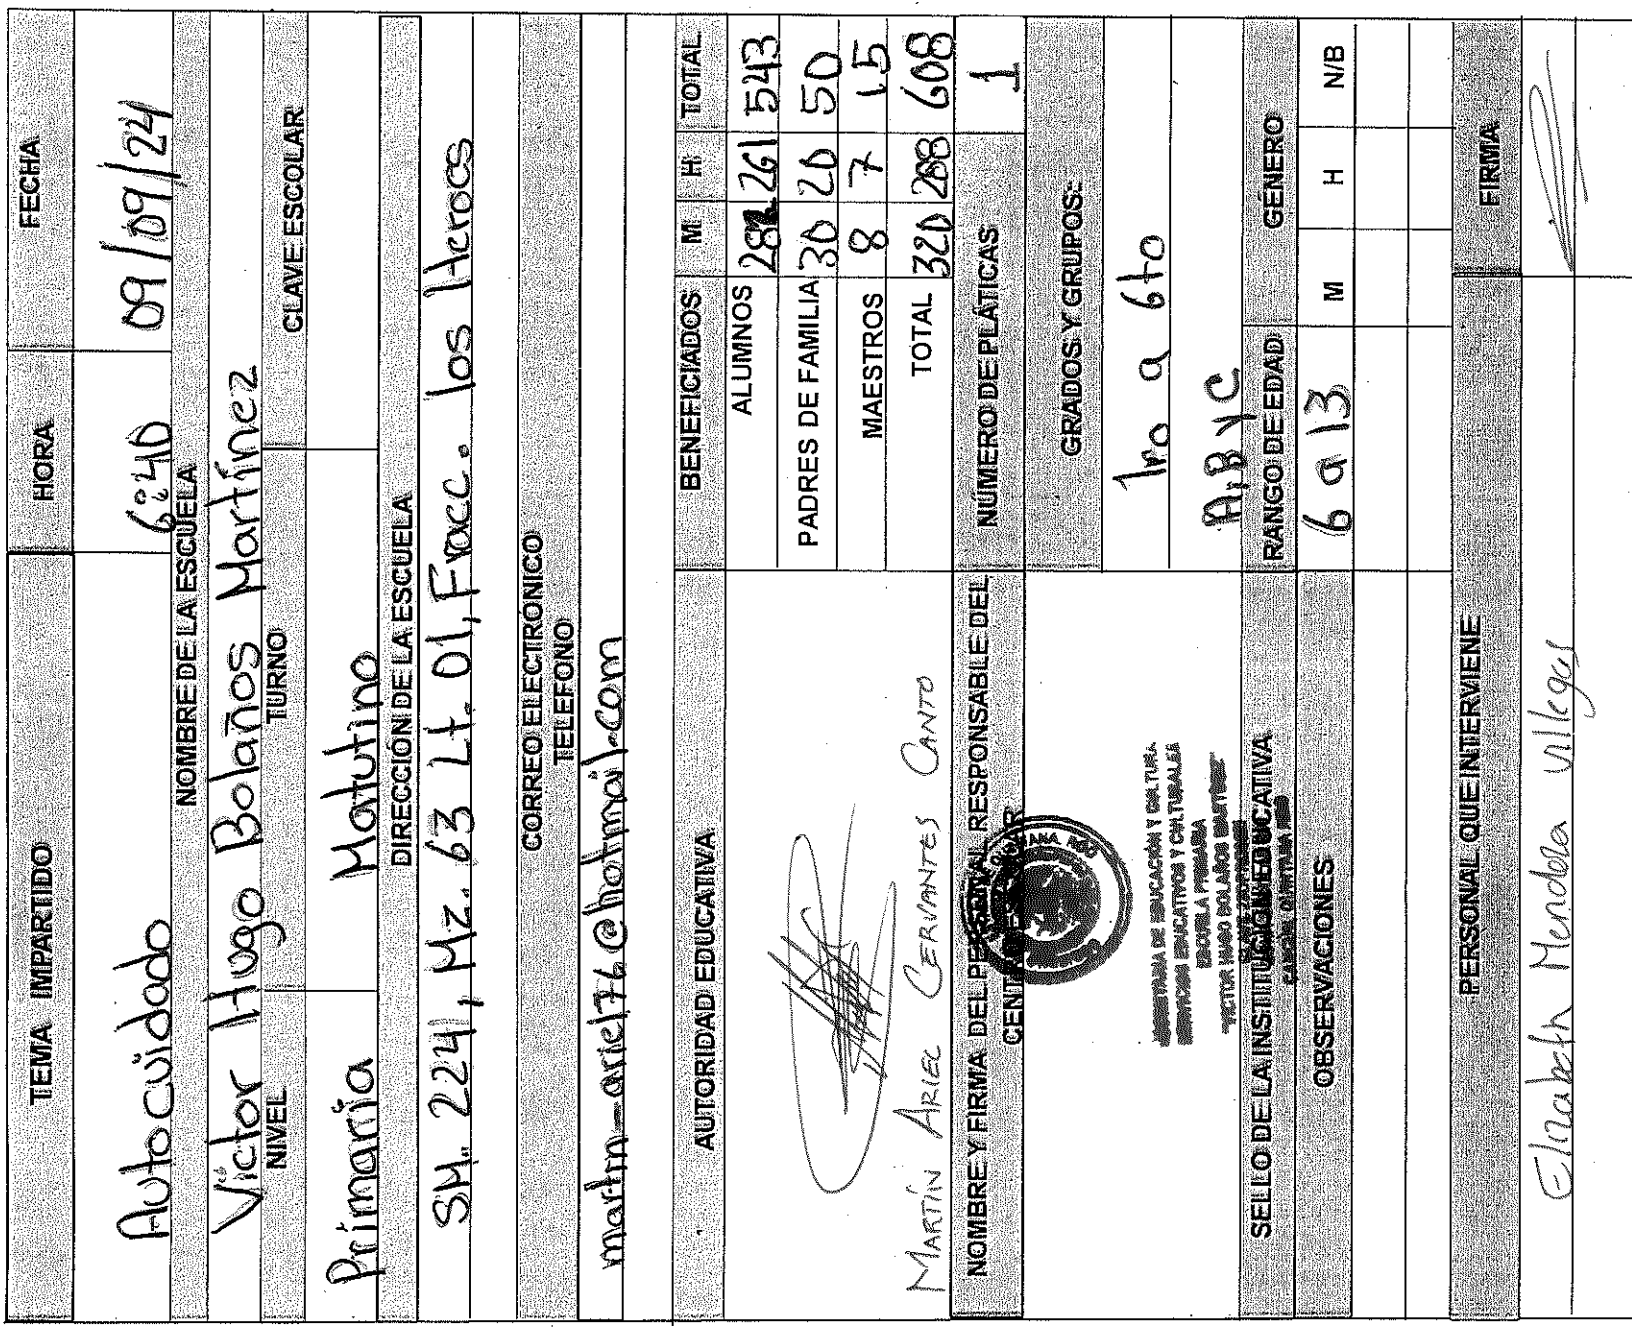 TEMA IMPARTIDO HORA FECHA
Autocuidado 6:40 09/09/24
NOMBRE DE LA ESCUELA
Victor Hugo Bolaños Martínez
NIVEL TURNO CLAVE ESCOLAR
Primaria Matutino
DIRECCIÓN DE LA ESCUELA
SM. 224, Mz. 63 Lt. 01, Fracc. los Heroes
CORREO ELECTRÓNICO
TELEFONO
martin-ariel76@hotmail.com
AUTORIDAD EDUCATIVA BENEFICIADOS M H TOTAL
ALUMNOS 282 261 543
PADRES DE FAMILIA 30 20 50
MAESTROS 8 7 15
TOTAL 320 288 608
MARTÍN ARIEL CERVANTES CANTO
NOMBRE Y FIRMA DEL PERSONAL RESPONSABLE DEL
CENTRO ESCOLAR
NÚMERO DE PLÁTICAS 1
GRADOS Y GRUPOS:
1ro a 6to
A, B y C
SECRETARIA DE EDUCACIÓN Y CULTURA
SERVICIOS EDUCATIVOS Y CULTURALES
ESCUELA PRIMARIA
"VICTOR HUGO BOLAÑOS MARTINEZ"
CANCUN, QUINTANA ROO
SELLO DE LA INSTITUCIÓN EDUCATIVA RANGO DE EDAD GÉNERO
OBSERVACIONES 6 a 13 M H N/B
PERSONAL QUE INTERVIENE FIRMA
Elizabeth Mendoza Villegas